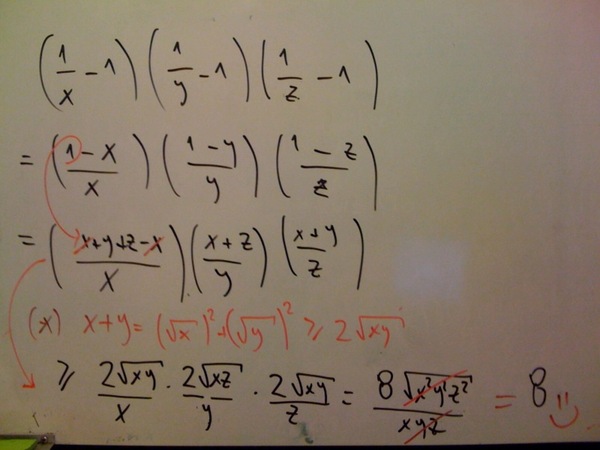 (1/x - 1) (1/y - 1) (1/z - 1)
= (1 - x / x) (1 - y / y) (1 - z / z)
= (x+y+z-x / x) (x+z / y) (x+y / z)
(*) x+y = (√x)² + (√y)² ≥ 2√xy
≥ 2√xy / x · 2√xz / y · 2√xy / z = 8√x²y²z² / xyz = 8 :)